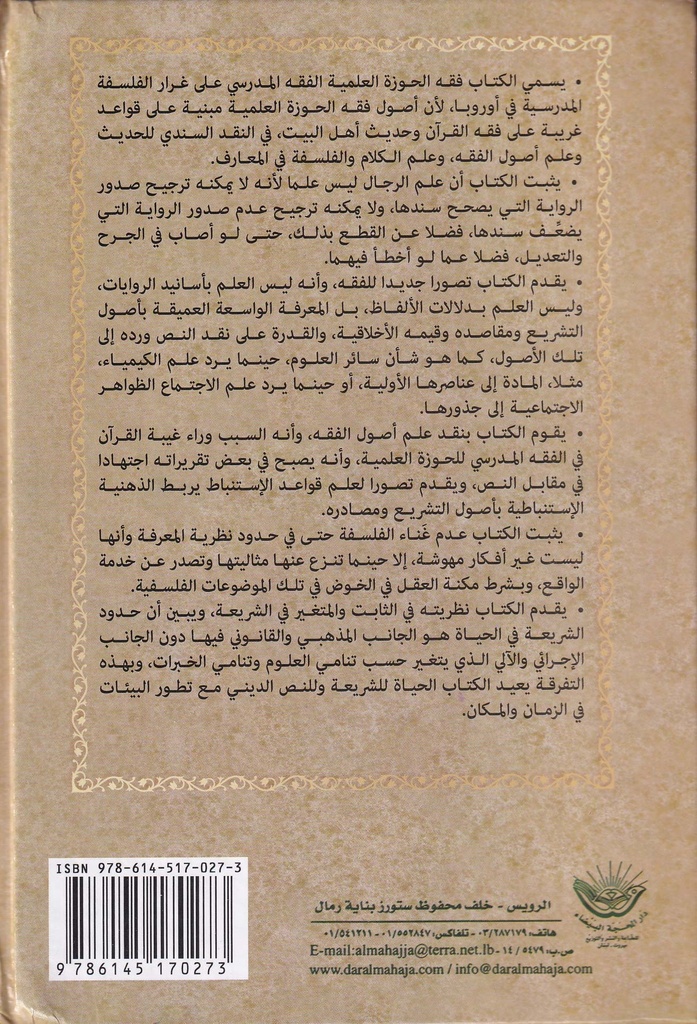 • يسمي الكتاب فقه الحوزة العلمية الفقه المدرسي على غرار الفلسفة
المدرسية في أوروبا، لأن أصول فقه الحوزة العلمية مبنية على قواعد
غريبة على فقه القرآن وحديث أهل البيت، في النقد السندي للحديث
وعلم أصول الفقه، وعلم الكلام والفلسفة في المعارف.
• يثبت الكتاب أن علم الرجال ليس علما لأنه لا يمكنه ترجيح صدور
الرواية التي يصحح سندها، ولا يمكنه ترجيح عدم صدور الرواية التي
يضعَّف سندها، فضلا عن القطع بذلك، حتى لو أصاب في الجرح
والتعديل، فضلا عما لو أخطأ فيهما.
• يقدم الكتاب تصورا جديدا للفقه، وأنه ليس العلم بأسانيد الروايات،
وليس العلم بدلالات الألفاظ، بل المعرفة الواسعة العميقة بأصول
التشريع ومقاصده وقيمه الأخلاقية، والقدرة على نقد النص ورده إلى
تلك الأصول، كما هو شأن سائر العلوم، حينما يرد علم الكيمياء،
مثلا، المادة إلى عناصرها الأولية، أو حينما يرد علم الاجتماع الظواهر
الاجتماعية إلى جذورها.
• يقوم الكتاب بنقد علم أصول الفقه، وأنه السبب وراء غيبة القرآن
في الفقه المدرسي للحوزة العلمية، وأنه يصبح في بعض تقريراته اجتهادا
في مقابل النص، ويقدم تصورا لعلم قواعد الإستنباط يربط الذهنية
الإستنباطية بأصول التشريع ومصادره.
• يثبت الكتاب عدم غَناء الفلسفة حتى في حدود نظرية المعرفة وأنها
ليست غير أفكار مهوشة، إلا حينما تنزع عنها مثاليتها وتصدر عن خدمة
الواقع، وبشرط مكنة العقل في الخوض في تلك الموضوعات الفلسفية.
• يقدم الكتاب نظريته في الثابت والمتغير في الشريعة، ويبين أن حدود
الشريعة في الحياة هو الجانب المذهبي والقانوني فيها دون الجانب
الإجرائي والآلي الذي يتغير حسب تنامي العلوم وتنامي الخبرات، وبهذه
التفرقة يعيد الكتاب الحياة للشريعة وللنص الديني مع تطور البيئات
في الزمان والمكان.
ISBN 978-614-517-027-3
9 786145 170273
دار المحجة البيضاء
للطباعة والنشر والتوزيع
بيروت - لبنان
الرويس - خلف محفوظ ستورز بناية رمال
هاتف: ٠٣/٢٨٧١٧٩ - تلفاكس: ٠١/٥٥٢٨٤٧ - ٠١/٥٤١٢١١
ص.ب: ١٤/٥٤٧٩ - E-mail:almahajja@terra.net.lb
www.daralmahaja.com / info@daralmahaja.com